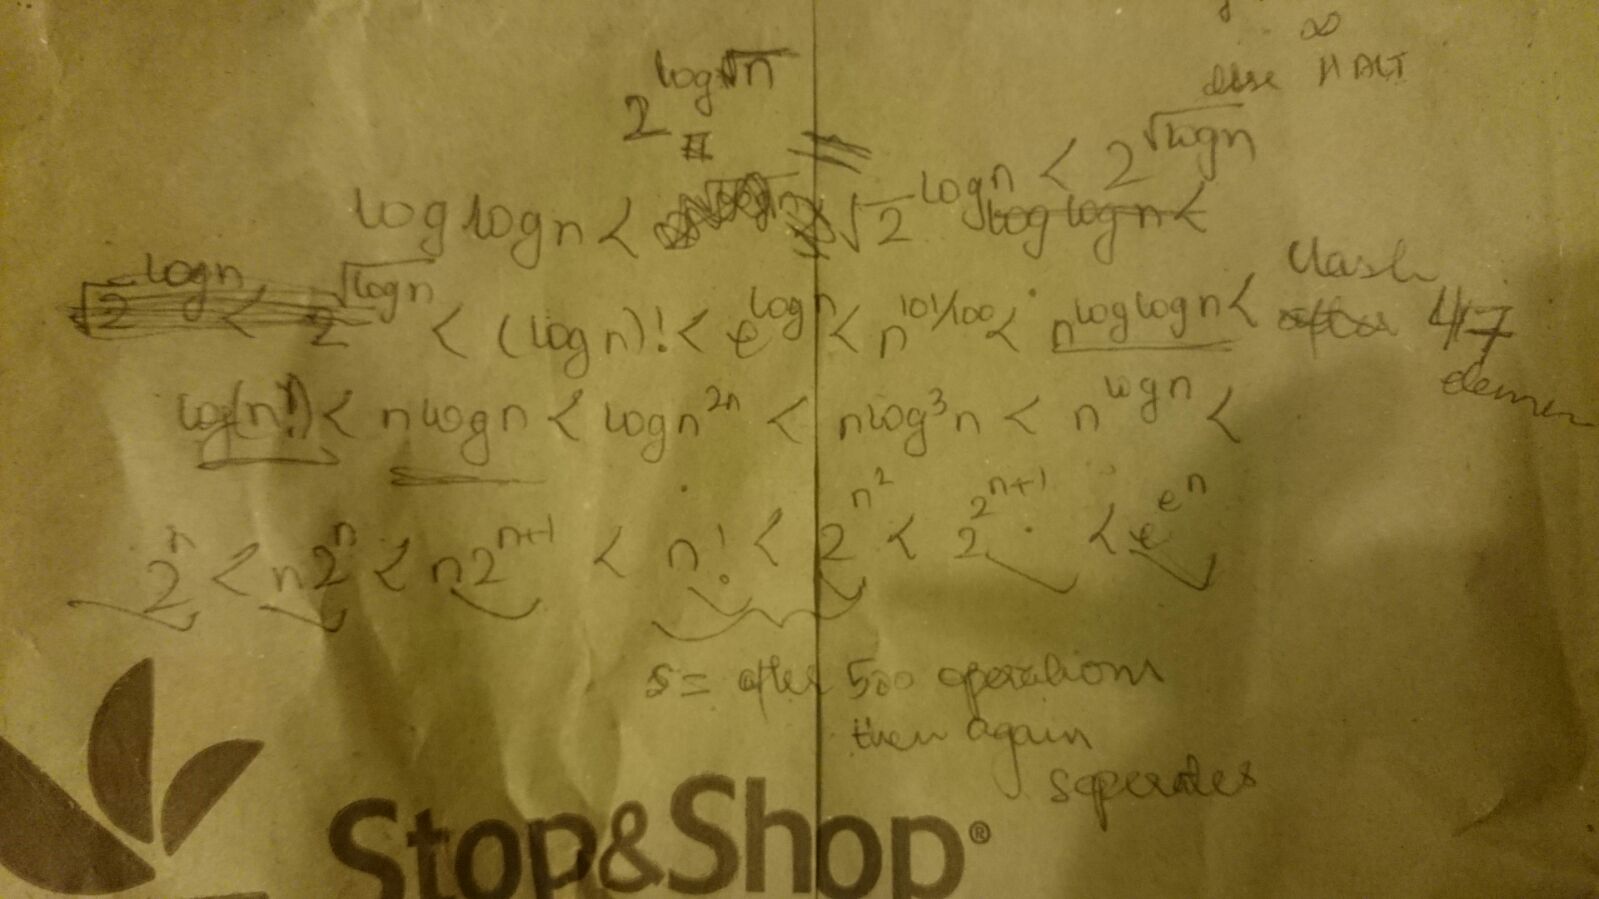 ∞
else HALT
2^{log√n}
=
log log n < √2^{log n} < 2^{√log n}
log log n <
√2^{log n} < 2^{√log n} < (log n)! < e^{log n} < n^{101/100} < n^{log log n} < 417
log(n!) < n log n < log n^{2n} < n log^3 n < n^{log n} <
2^n < n2^n < n2^{n+1} < n! < 2^{n^2} < 2^{2^{n+1}} < e^{e^n}
s = after 500 operations
then again
seperates
Stop&Shop®